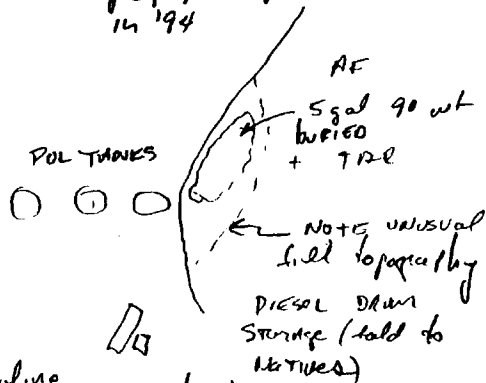 in '94
AF
5 gal 90 wt
BURIED
+
POL TANKS
NOTE UNUSUAL
fill topography
DIESEL DRUM
STORAGE (sold to
NATIVES)